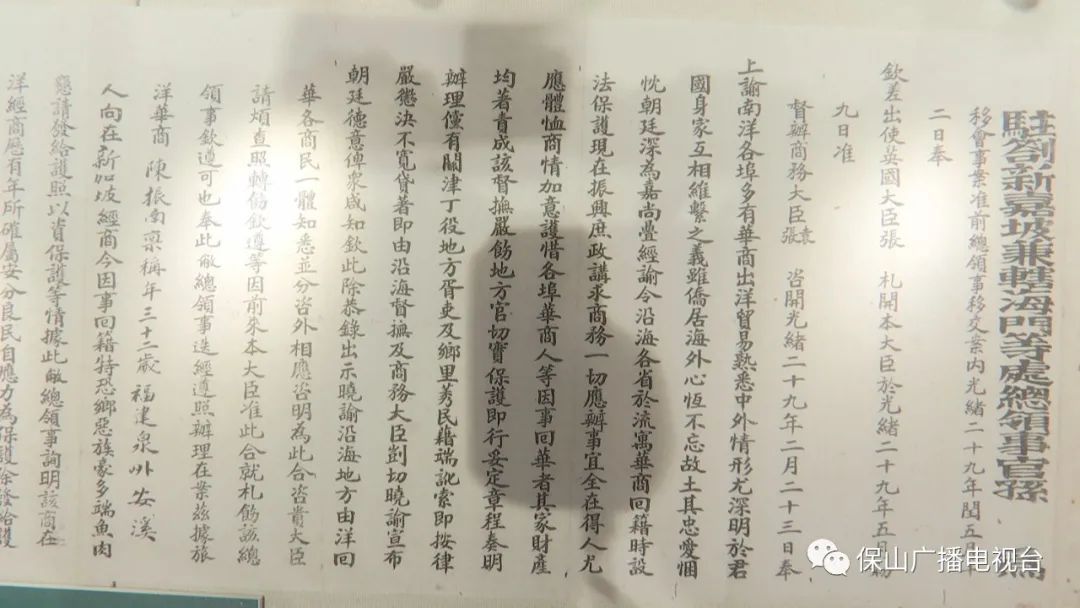 駐劄新嘉坡兼轄海門等處總領事官孫 為
移會事案准前總領事移交案內光緒二十九年閏五月
二日奉
欽差出使英國大臣張 札開本大臣於光緒二十九年五月
九日准
督辦商務大臣袁張 咨開光緒二十九年二月二十三日奉
上諭南洋各埠多有華商出洋貿易熟悉中外情形尤深明於君
國身家互相維繫之義雖僑居海外心恆不忘故土其忠愛悃
忱朝廷深為嘉尚疊經諭令沿海各省於流寓華商回籍時設
法保護現在振興庶政講求商務一切應辦事宜全在得人尤
應體恤商情加意護惜各埠華商人等因事回華者其家財產
均著責成該督撫嚴飭地方官切實保護即行妥定章程奏明
辦理僅有關津丁役地方胥吏及鄉里秀民藉端訛索即按律
嚴懲決不寬貸著即由沿海督撫及商務大臣剴切曉諭宣布
朝廷德意俾衆咸知欽此除恭錄出示曉諭沿海地方由洋回
華各商民一體知悉並分咨外相應咨明為此合咨貴大臣
請煩查照轉飭欽遵等因前來本大臣准此合就札飭該總
領事欽遵可也奉此敝總領事迭經遵照辦理在案茲據旅
洋華商 陳振南稟稱年三十二歲 福建泉州安溪
人向在新加坡經商今因事回籍特恐鄉惡族豪多端魚肉
懇請發給護照以資保護等情據此敝總領事詢明該商在
洋經商歷有年所確屬安分良民自應力為保護除發給護
保山广播电视台